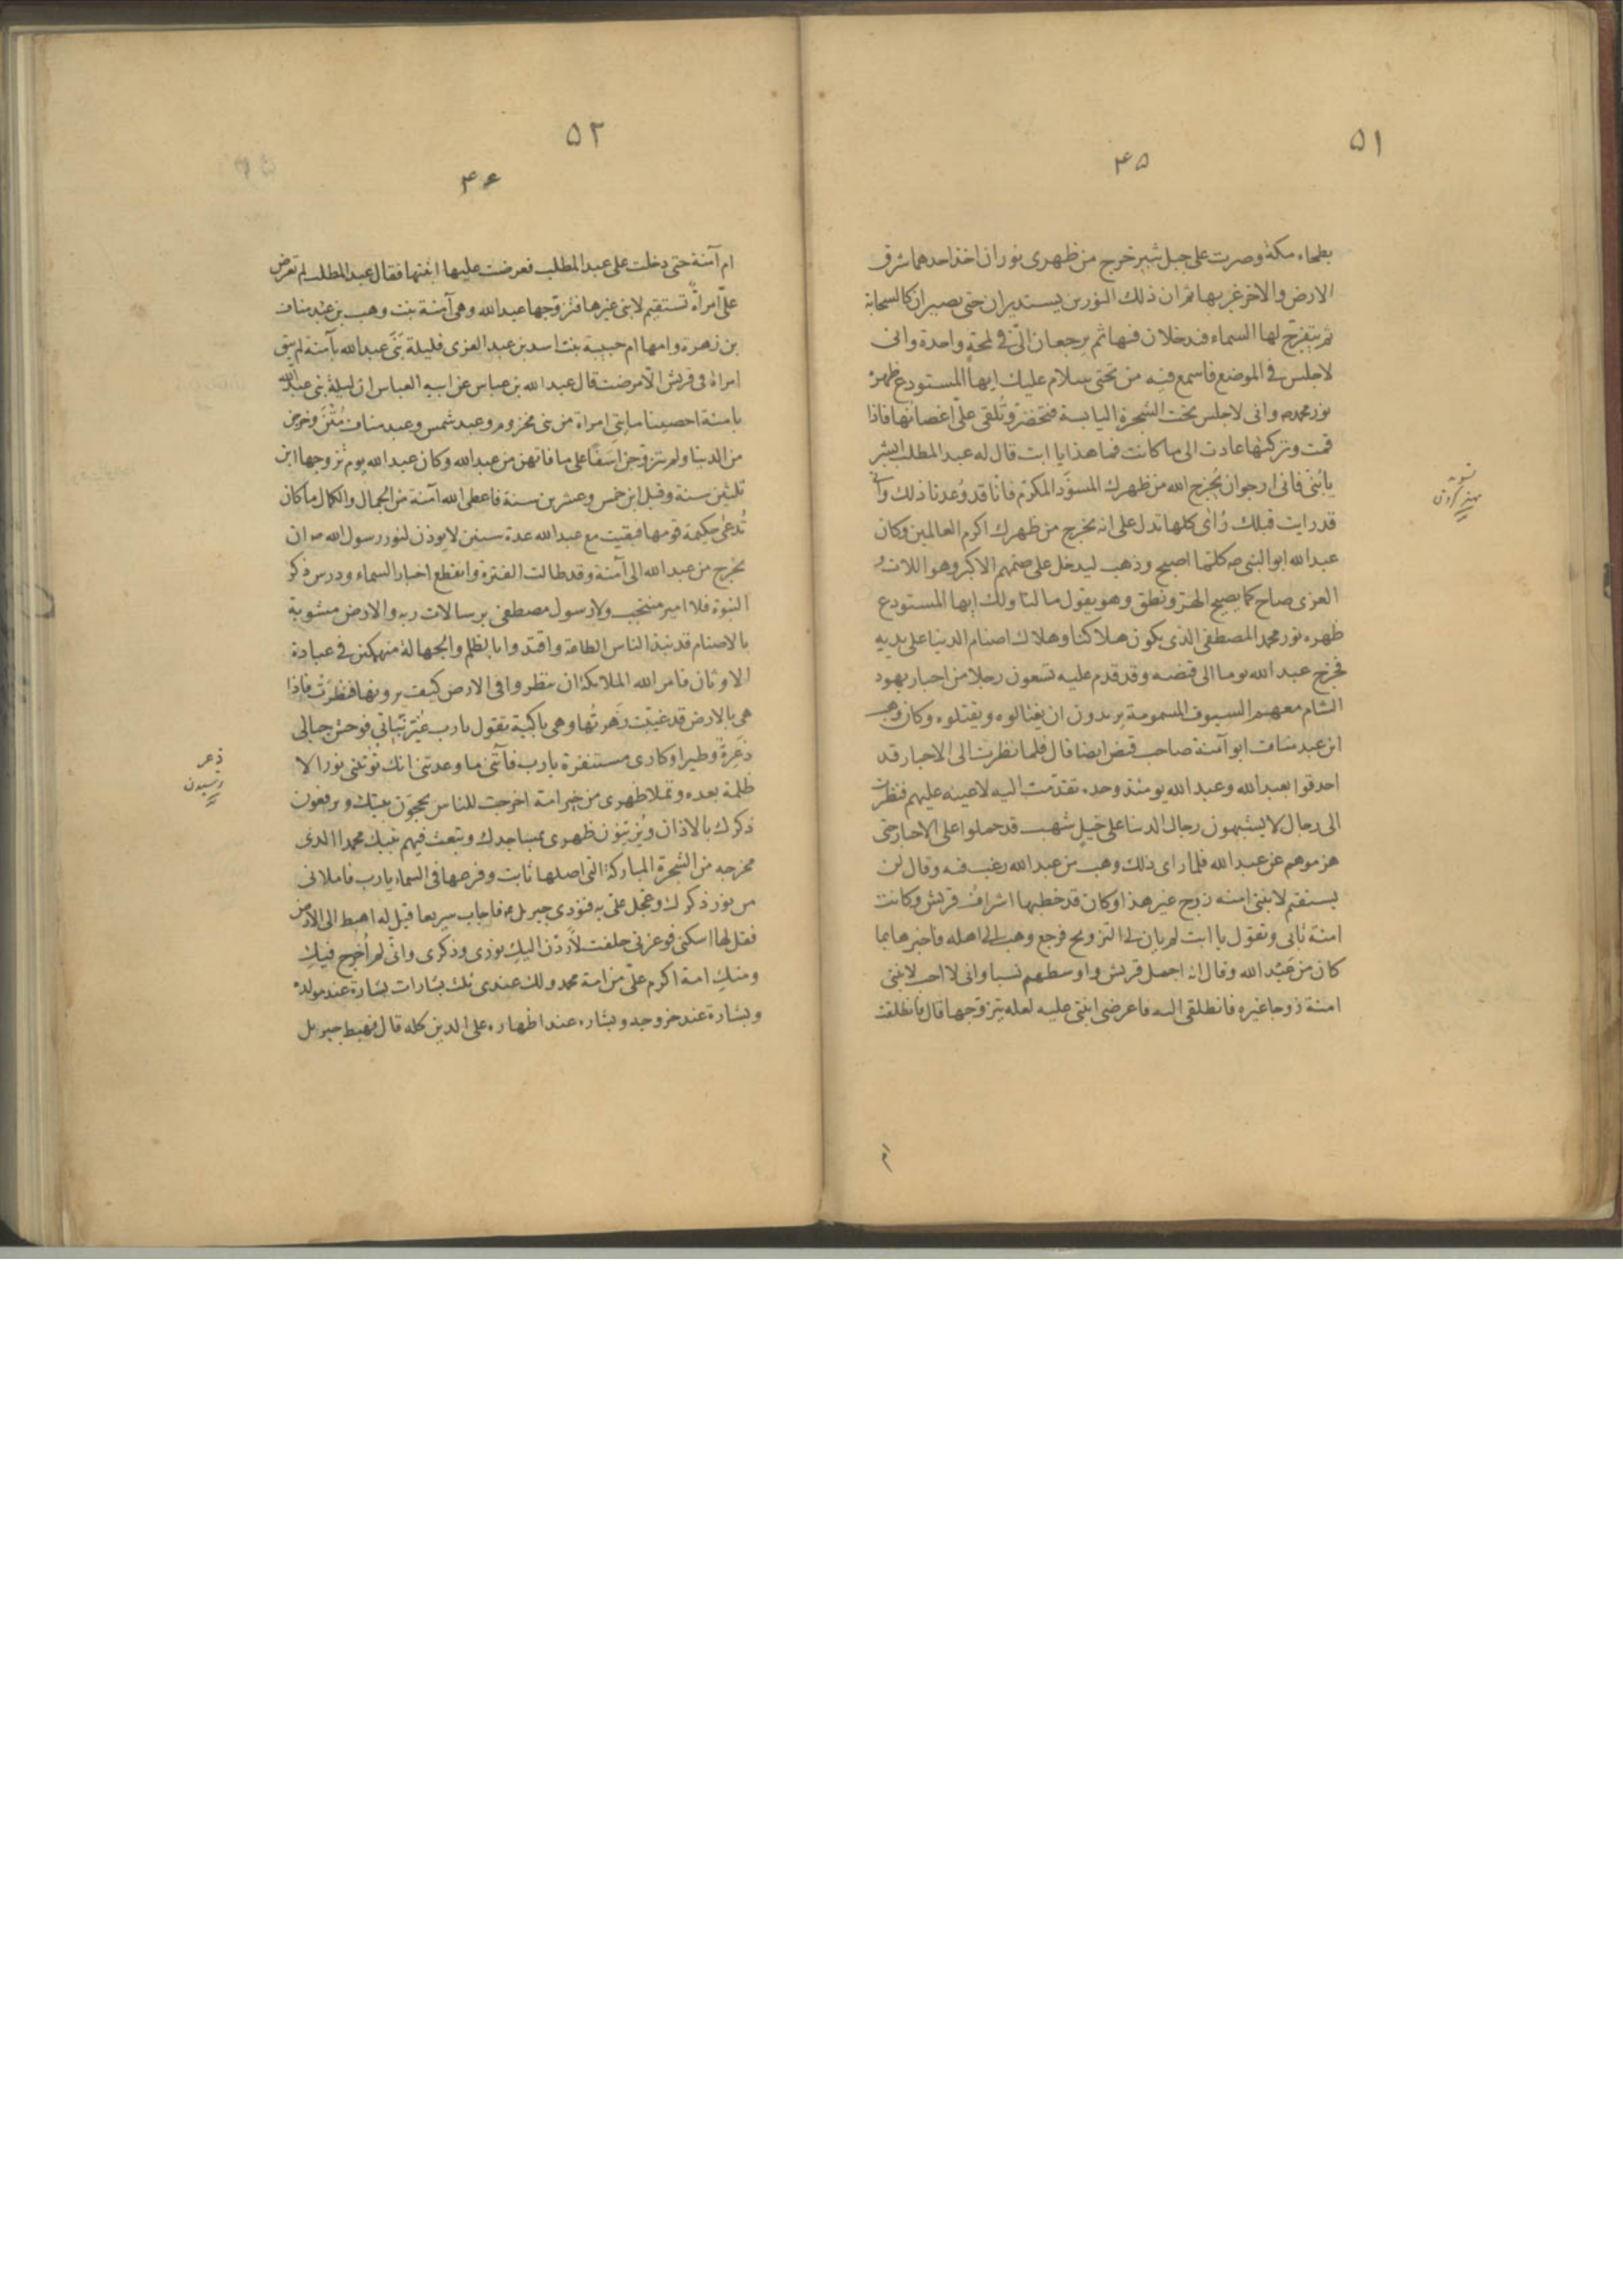 ۵۱
۴۵
بطحاء مكة وصرت على جبل ثبير خرج من ظهرى نوران اخذ احدهما شرق
الارض والاخر غربها ثم ان ذلك النورين يستديران حتى يصيران كالسحابة
ثم ينفرج لها السماء فيدخلان فيها ثم يرجعان الىّ فى لمحة واحدة وانى
لاجلس فى الموضع فاسمع فيه من تحتى سلام عليك ايها المستودع ظهره
نور محمد ص وانى لاجلس تحت الشجرة اليابسة فتخضر وتُلقى علىّ اغصانها فاذا
قمت وتركتها عادت الى ما كانت فما هذا يا ابت قال له عبد المطلب ابشر
يا بُنىّ فانى ارجوا ان يُخرج الله من ظهرك المستودَع المكرم فانّا قد وُعدنا ذلك وانى
قد رايت قبلك رُؤاى كلها تدل على انه يخرج من ظهرك اكرم العالمين وكان
عبد الله ابو النبى ص كلما اصبح وذهب ليدخل على صنمهم الاكبر وهو اللات و
العزى صاح كما يصيح الهر ونطق وهو يقول ما لنا ولك ايها المستودع
ظهره نور محمد المصطفى الذى يكون هلاكنا وهلاك اصنام الدنيا على يديه
فخرج عبد الله يوما الى قنصه وقد قدم عليه تسعون رجلا من احبار يهود
الشام معهم السيوف المسمومة يريدون ان يغتالوه ويقتلوه وكان وهب
ابن عبد مناف ابو آمنة صاحب قنص ايضا قال فلما نظرت الى الاحبار قد
احدقوا بعبد الله وعبد الله يومئذ وحده تقدّمت اليه لاعينه عليهم فنظرت
الى رجال لا يشبهون رجال الدنيا على خيل شهب قد حملوا على الاحبار حتى
هزموهم عن عبد الله فلما راى ذلك وهب من عبد الله رغب فيه وقال لن
يستقيم لابنتى امنه زوج غير هذا وكان قد خطبها اشراف قريش وكانت
امنة تابى وتقول يا ابت لم يان لى التزويج فرجع وهب الى اهله فاخبرها بما
كان من عبد الله وقال انه اجمل قريش واوسطهم نسبا وانى لا احب لابنتى
امنة زوجا غيره فانطلقى اليه فاعرضى ابنتى عليه لعله يتزوجها قال فانطلقت
۵۲
۴۶
ام آمنة حتى دخلت على عبد المطلب فعرضت عليها ابنتها فقال عبد المطلب لم تعرض
علىّ امراة تستقيم لابنى غيرها فتزوجها عبد الله وهى آمنة بنت وهب بن عبد مناف
بن زهرة وامها ام حبيبة بنت اسد بن عبد العزى فليلة بَنَى عبد الله بآمنة لم يبق
امراة فى قريش الّا مرضت قال عبد الله بن عباس عن ابيه العباس ان ليلة بنى عبد الله
بامنة احصينا مايتى امراة من بنى مخزوم وعبد شمس وعبد مناف مُتْنَ وخرجن
من الدنيا ولم يتزوجن اسَفًا على ما فاتهن من عبد الله وكان عبد الله يوم تزوجها ابن
ثلثين سنة وقيل ابن خمس وعشرين سنة فاعطى الله آمنة من الجمال والكمال ما كان
تُدعى حكيمة قومها فبقيت مع عبد الله عدة سنين لا يوذن لنور رسول الله ص ان
يخرج من عبد الله الى آمنة وقد طالت الفترة وانقطع اخبار السماء ودرس ذكر
النبوة فلا امير منتجب ولا رسول مصطفى برسالات ربه والارض مشوبة
بالاصنام قد نبذ الناس الطاعة واقتدوا بالظلم والجهالة منهمكين فى عبادة
الاوثان فامر الله الملايكة ان ينظروا فى الارض كيف يرونها فنظرت فاذا
هى بالارض قد غيبت زهرتها وهى باكية تقول يا رب غُيّر نباتى فوحش جبالى
ذَعِرةٌ وطير اوكارى مستنفرة يا رب فآتنى ما وعدتنى انك تؤتنى نورا لا
ظلمة بعده وتملا ظهرى من خير امة اخرجت للناس يحجّون بيتك ويرفعون
ذكرك بالاذان ويُزيّنون ظهرى بمساجدك وتبعث فيهم نبيك محمدا الذى
مخرجه من الشجرة المباركة التى اصلها ثابت وفرعها فى السماء يا رب فاملانى
من نور ذكرك وعجل علىّ به فنودى جبريل ع فاجاب سريعا قيل له اهبط الى الارض
فقل لها اسكنى فوعزتى حلفت لاردّن اليك نورى وذكرى وانى لم اُخرج فيك
ومنك امة اكرم علىّ من امة محمد ولك عندى ثلث بشارات بشارة عند مولده
وبشارة عند خروجه وبشاره عند اظهاره على الدين كله قال فهبط جبريل
ذعر
ترسیدن
ام